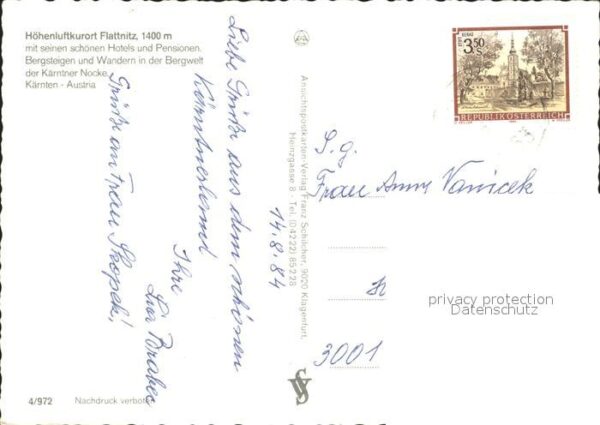 Höhenluftkurort Flattnitz, 1400 m
mit seinen schönen Hotels und Pensionen.
Bergsteigen und Wandern in der Bergwelt
der Kärntner Nocke.
Kärnten - Austria
14.8.84
Liebe Grüße aus dem schönen
Kärntnerland
Ihre
Lia Brabec
Grüße an Frau Skopek!
4/972
Nachdruck verboten
Ansichtspostkarten-Verlag Franz Schilcher, 9020 Klagenfurt,
Heinzgasse 8 - Tel. (0 42 22) 85 2 28
3.50
REPUBLIK ÖSTERREICH
S.g.
Frau Anny Vanicek
3001
privacy protection
Datenschutz